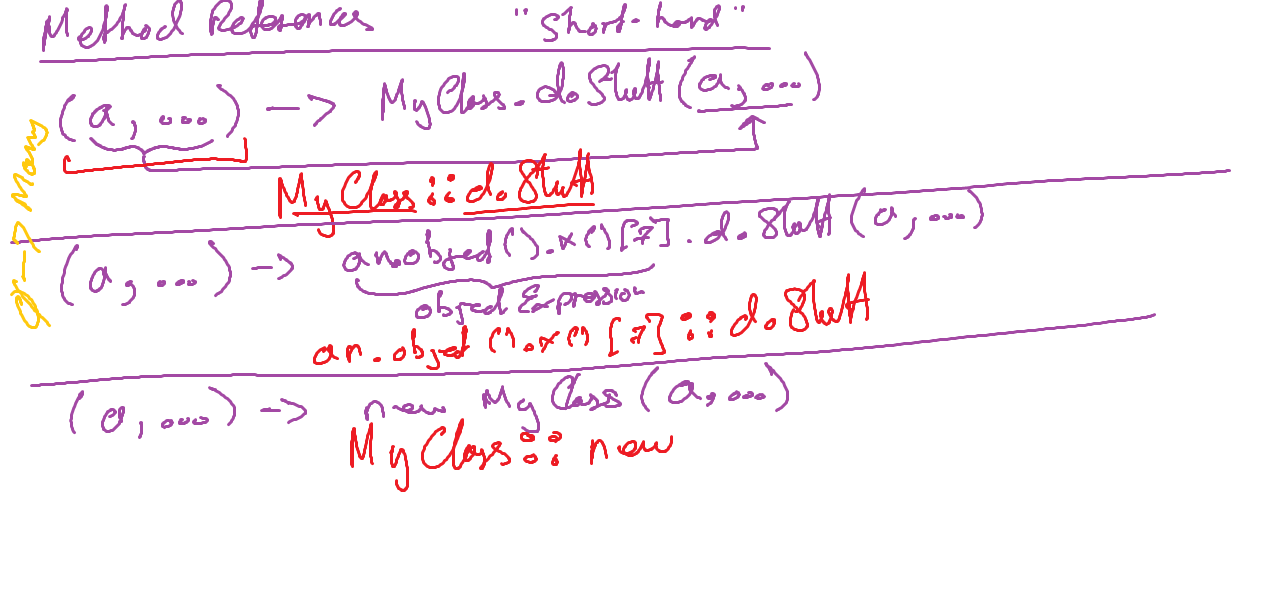 Method References "Short-hand"
(a, ...) -> MyClass.doStuff(a, ...)
MyClass::doStuff
(a, ...) -> anObject().x()[7].doStuff(a, ...)
object Expression
anObject().x()[7]::doStuff
(a, ...) -> new MyClass(a, ...)
MyClass::new
-> Many